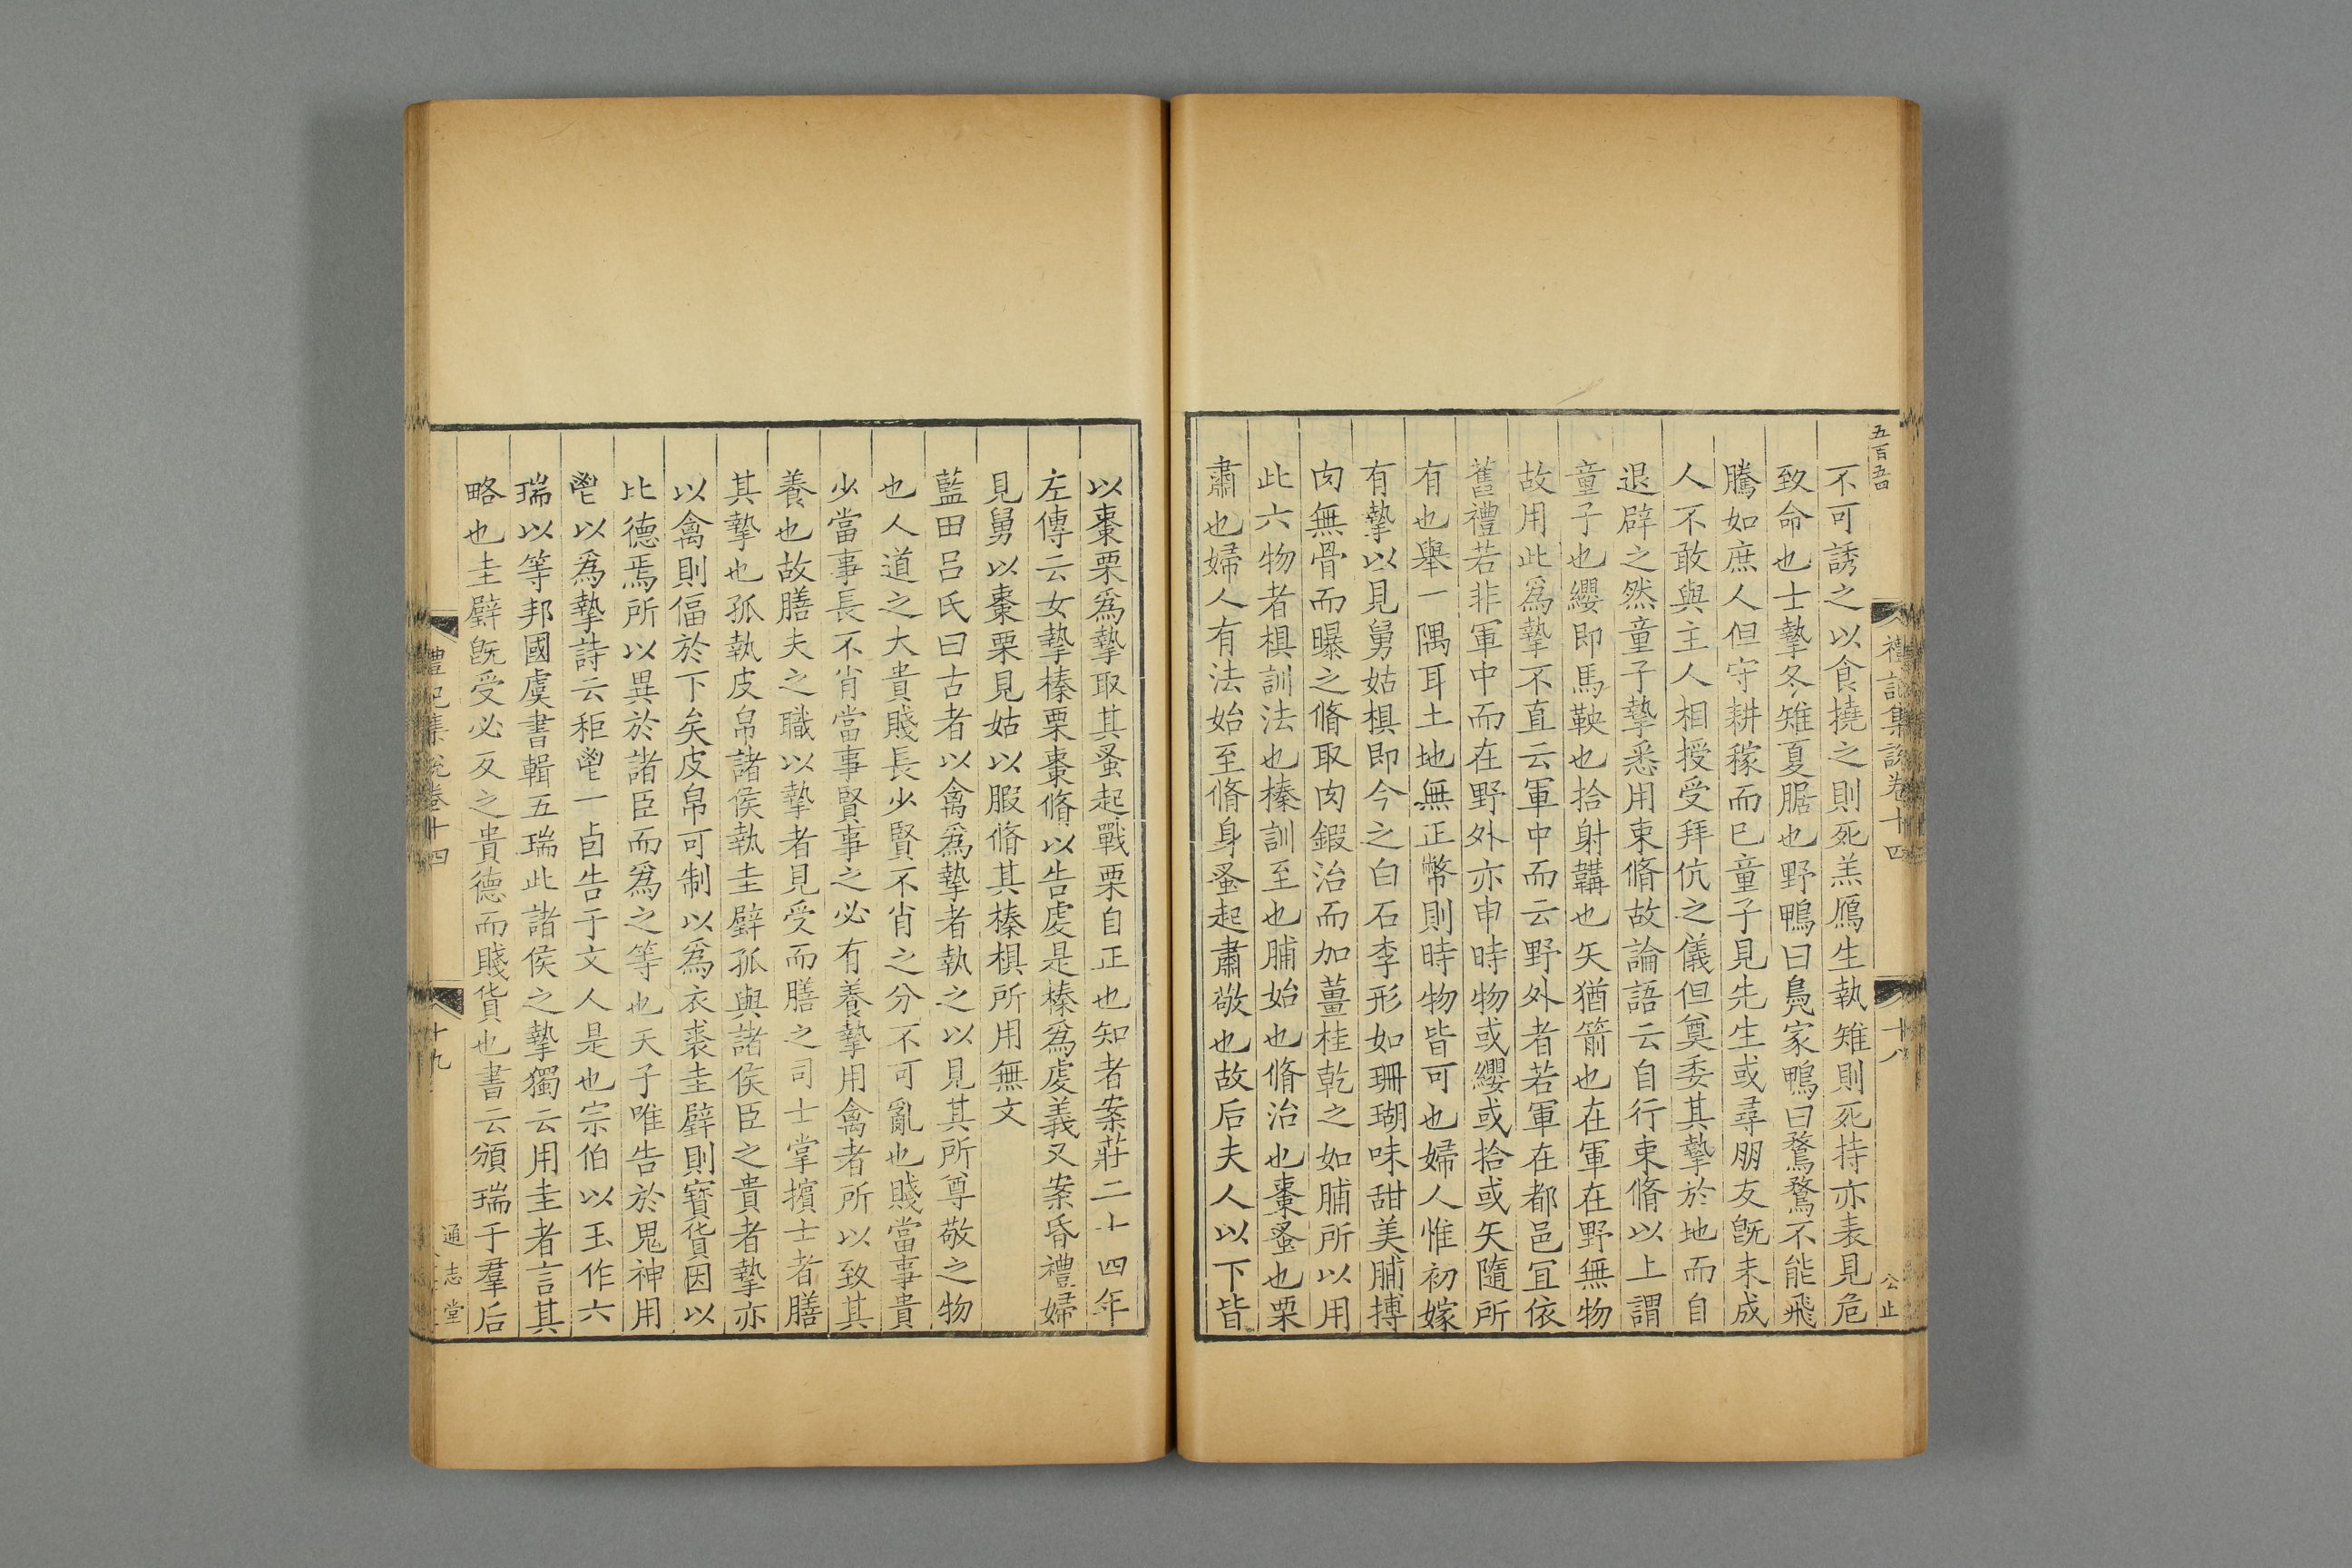 五百五四
禮記集說卷十四
十八
公止
不可誘之以食撓之則死羔鴈生執雉則死持亦表見危
致命也士摯冬雉夏腒也野鴨曰鳧家鴨曰鶩鶩不能飛
騰如庶人但守耕稼而已童子見先生或尋朋友旣未成
人不敢與主人相授受拜伉之儀但奠委其摯於地而自
退辟之然童子摯悉用束脩故論語云自行束脩以上謂
童子也纓即馬鞅也拾射韝也矢猶箭也在軍在野無物
故用此爲摯不直云軍中而云野外者若軍在都邑冝依
舊禮若非軍中而在野外亦申時物或纓或拾或矢隨所
有也舉一隅耳土地無正幣則時物皆可也婦人惟初嫁
有摯以見舅姑椇即今之白石李形如珊瑚味甜美脯搏
肉無骨而曝之脩取肉鍛治而加薑桂乾之如脯所以用
此六物者椇訓法也榛訓至也脯始也脩治也棗蚤也栗
肅也婦人有法始至脩身蚤起肅敬也故后夫人以下皆
以棗栗爲摯取其蚤起戰栗自正也知者案莊二十四年
左傳云女摯榛栗棗脩以告虔是榛爲虔義又案昏禮婦
見舅以棗栗見姑以腶脩其榛椇所用無文
藍田呂氏曰古者以禽爲摯者執之以見其所尊敬之物
也人道之大貴賤長少賢不肖之分不可亂也賤當事貴
少當事長不肖當事賢事之必有養摯用禽者所以致其
養也故膳夫之職以摯者見受而膳之司士掌擯士者膳
其摯也孤執皮帛諸侯執圭璧孤與諸侯臣之貴者摯亦
以禽則偪於下矣皮帛可制以爲衣裘圭璧則寶貨因以
比德焉所以異於諸臣而爲之等也天子唯告於鬼神用
鬯以爲摯詩云秬鬯一卣告于文人是也宗伯以玉作六
瑞以等邦國虞書輯五瑞此諸侯之摯獨云用圭者言其
略也圭璧旣受必反之貴德而賤貨也書云頒瑞于羣后
禮記集說卷十四
十九
通志堂